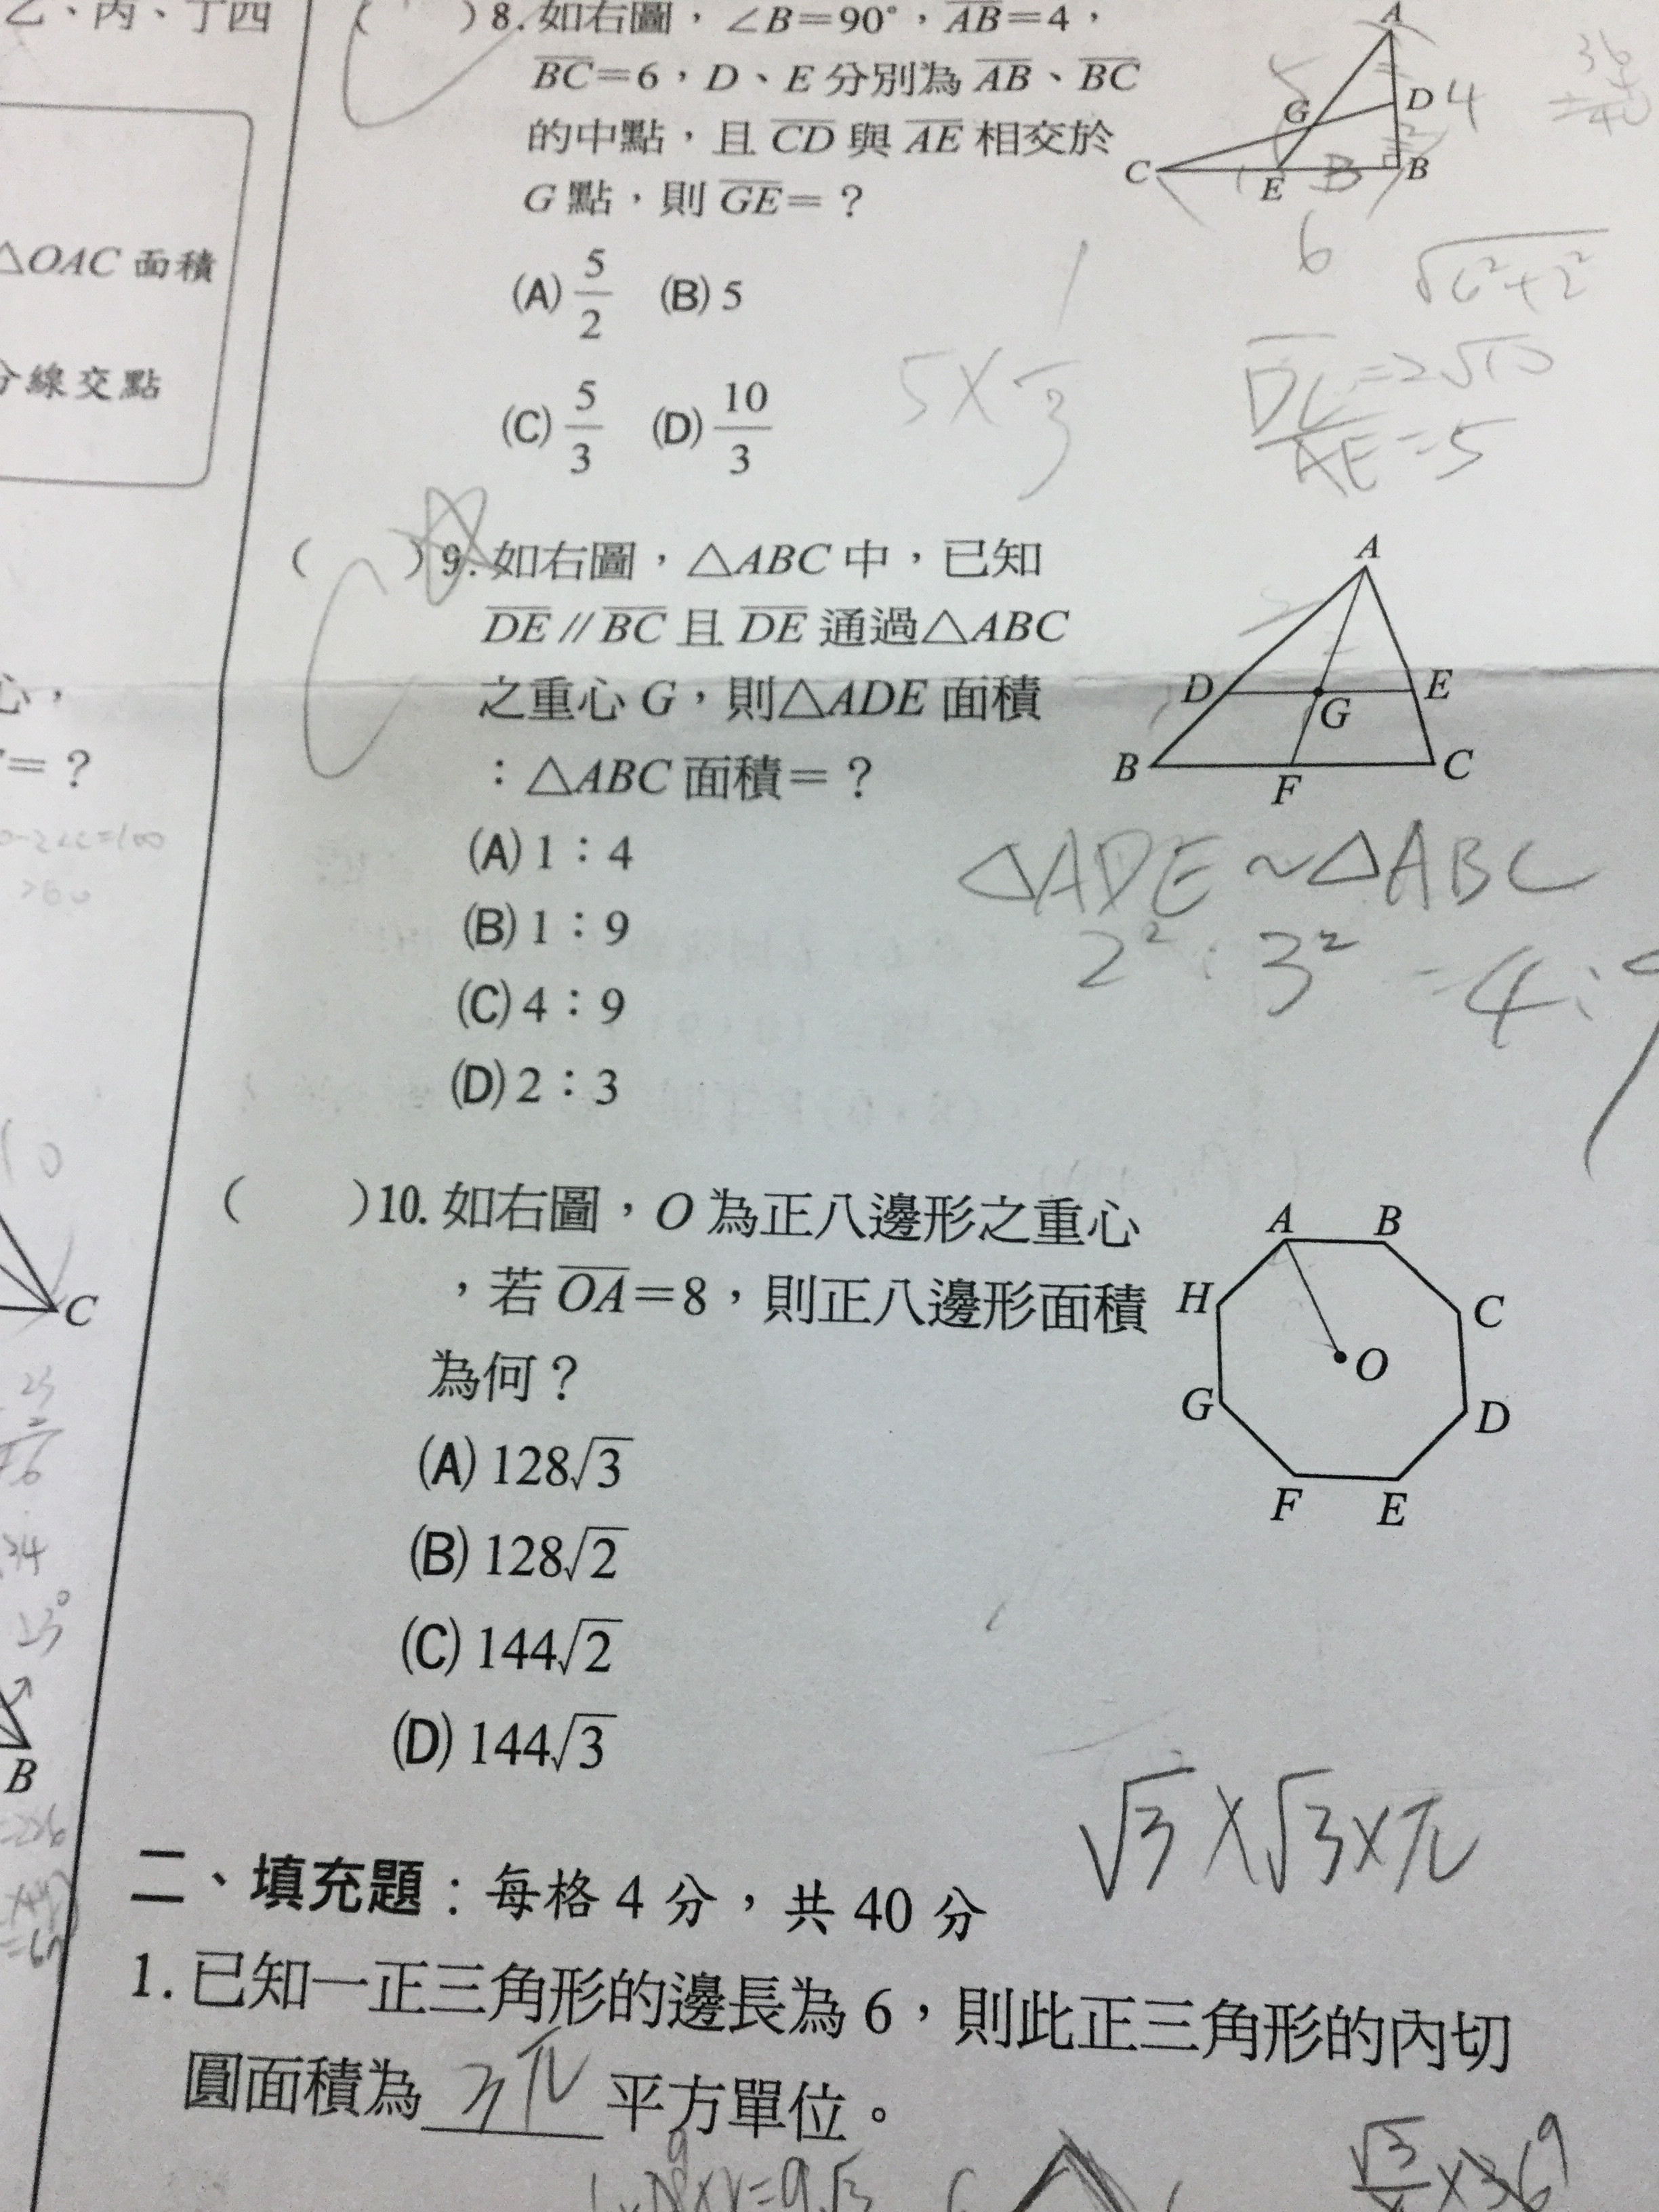 乙、丙、丁四
△OAC 面積
分線交點
心,
= ?
C
B
( )8. 如右圖,∠B=90°,AB=4,
BC=6,D、E 分別為 AB、BC
的中點,且 CD 與 AE 相交於
G 點,則 GE= ?
(A) 5/2 (B) 5
(C) 5/3 (D) 10/3
A
D 4
G
C E B B
6
5
√6²+2²
5×1/3
DC=2√10
AE=5
( )9. 如右圖,△ABC 中,已知
DE // BC 且 DE 通過△ABC
之重心 G,則△ADE 面積
:△ABC 面積= ?
(A) 1:4
(B) 1:9
(C) 4:9
(D) 2:3
A
D G E
B F C
△ADE~△ABC
2² : 3² = 4:9
( )10. 如右圖,O 為正八邊形之重心
,若 OA=8,則正八邊形面積
為何?
(A) 128√3
(B) 128√2
(C) 144√2
(D) 144√3
A B
H C
O
G D
F E
√3×√3×π
二、填充題:每格 4 分,共 40 分
1. 已知一正三角形的邊長為 6,則此正三角形的內切
圓面積為 3π 平方單位。